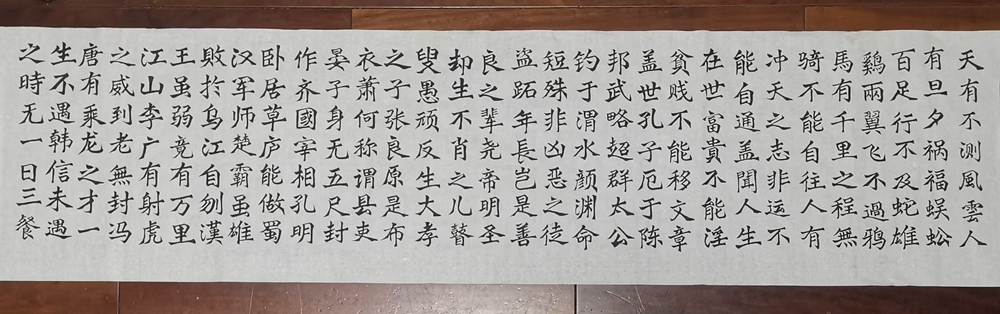 天有不测風雲人
有旦夕祸福蜈蚣
百足行不及蛇雄
鷄兩翼飞不過鸦
馬有千里之程無
骑不能自往人有
冲天之志非运不
能自通盖聞人生
在世富貴不能淫
貧贱不能移文章
盖世孔子厄于陈
邦武略超群太公
钓于渭水颜渊命
短殊非凶恶之徒
盗跖年長岂是善
良之辈尧帝明圣
却生不肖之儿瞽
叟愚顽反生大孝
之子张良原是布
衣萧何称谓县吏
晏子身无五尺封
作齐國宰相孔明
卧居草庐能做蜀
汉军师楚霸虽雄
敗於乌江自刎漢
王虽弱竟有万里
江山李广有射虎
之威到老無封冯
唐有乘龙之才一
生不遇韩信未遇
之時无一日三餐